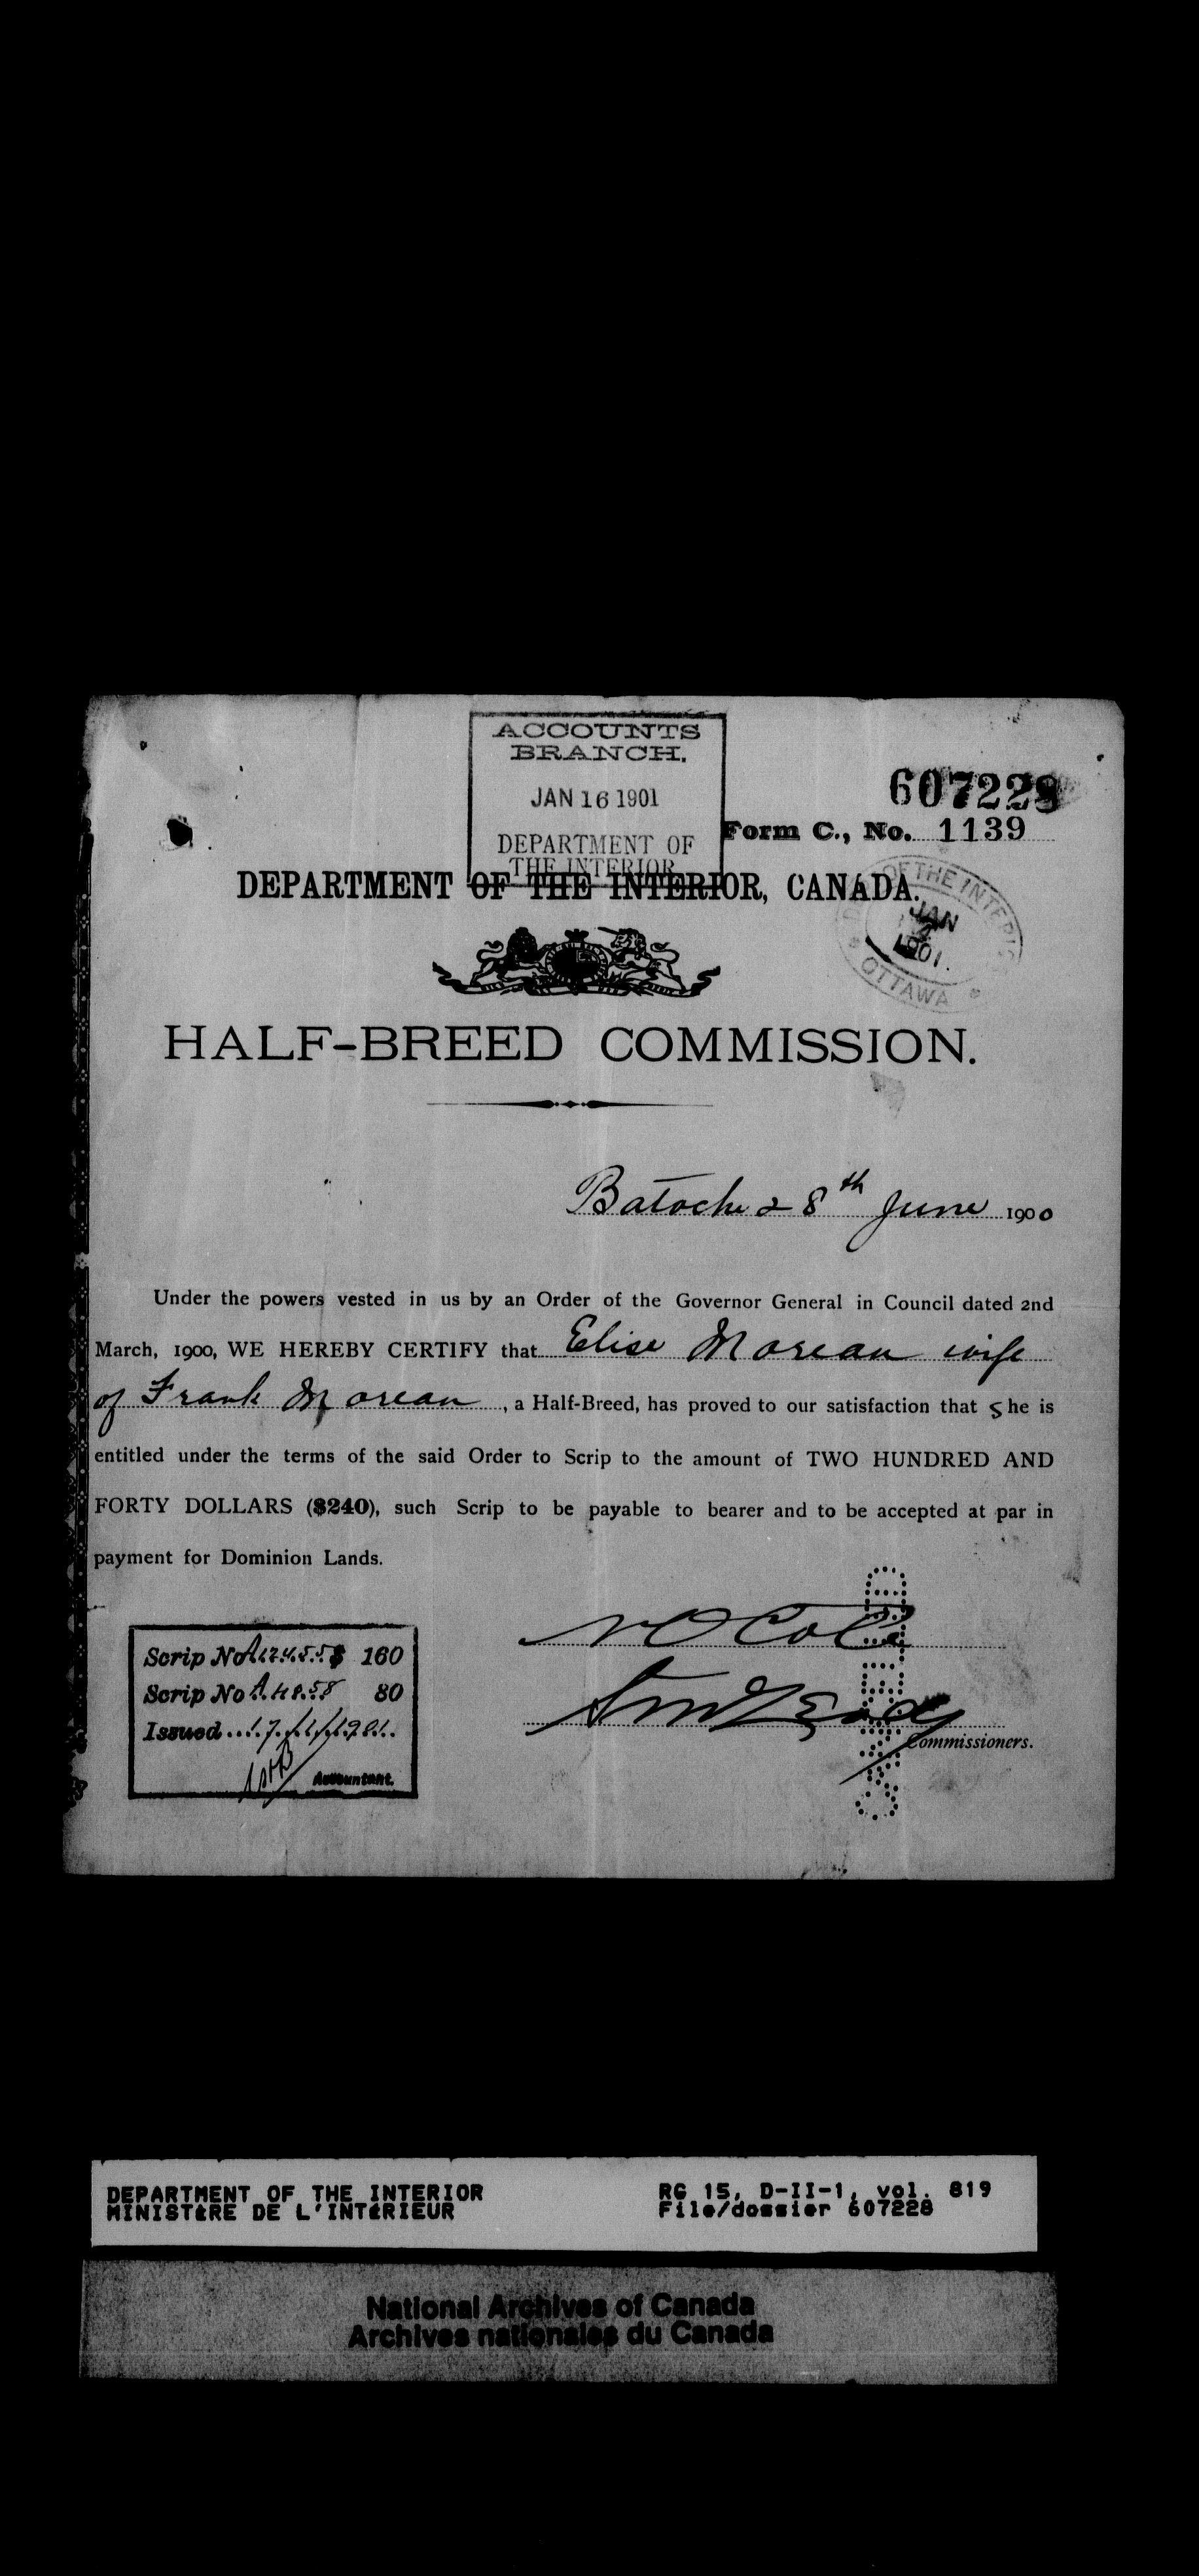 ACCOUNTS
BRANCH.
JAN 16 1901
DEPARTMENT OF
THE INTERIOR
607228
Form C., No. 1139
DEPARTMENT OF THE INTERIOR, CANADA.
OF THE INTERIOR
JAN
1901.
OTTAWA
HALF-BREED COMMISSION.
Batoche 28th June 1900
Under the powers vested in us by an Order of the Governor General in Council dated 2nd
March, 1900, WE HEREBY CERTIFY that Elise Moreau wife
of Frank Moreau, a Half-Breed, has proved to our satisfaction that she is
entitled under the terms of the said Order to Scrip to the amount of TWO HUNDRED AND
FORTY DOLLARS ($240), such Scrip to be payable to bearer and to be accepted at par in
payment for Dominion Lands.
Scrip No 160
Scrip No A.4858 80
Issued 17/1/1901.
Accountant.
Commissioners.
DEPARTMENT OF THE INTERIOR
MINISTÈRE DE L'INTÉRIEUR
RG 15, D-II-1, vol. 819
File/dossier 607228
National Archives of Canada
Archives nationales du Canada